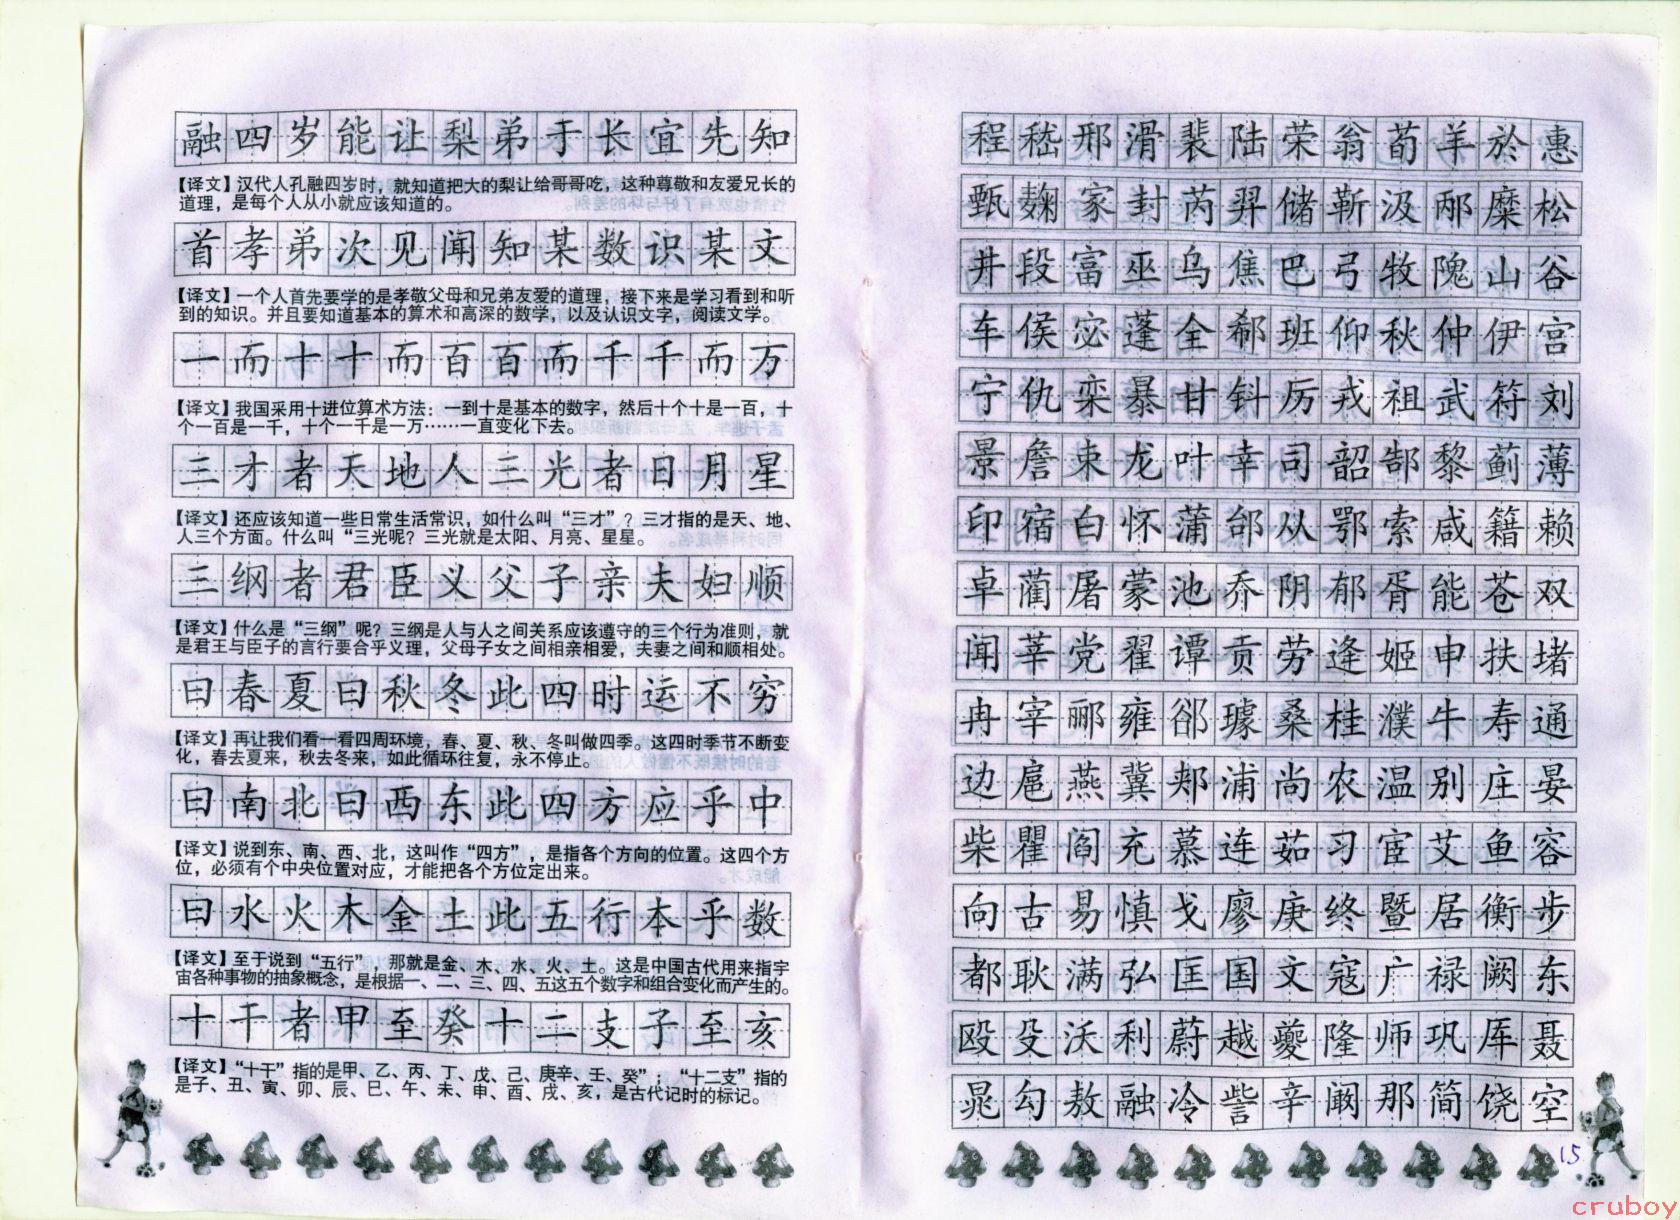 融四岁能让梨弟于长宜先知
【译文】汉代人孔融四岁时，就知道把大的梨让给哥哥吃，这种尊敬和友爱兄长的
道理，是每个人从小就应该知道的。
首孝弟次见闻知某数识某文
【译文】一个人首先要学的是孝敬父母和兄弟友爱的道理，接下来是学习看到和听
到的知识。并且要知道基本的算术和高深的数学，以及认识文字，阅读文学。
一而十十而百百而千千而万
【译文】我国采用十进位算术方法：一到十是基本的数字，然后十个十是一百，十
个一百是一千，十个一千是一万……一直变化下去。
三才者天地人三光者日月星
【译文】还应该知道一些日常生活常识，如什么叫“三才”？三才指的是天、地、
人三个方面。什么叫“三光呢？三光就是太阳、月亮、星星。
三纲者君臣义父子亲夫妇顺
【译文】什么是“三纲”呢？三纲是人与人之间关系应该遵守的三个行为准则，就
是君王与臣子的言行要合乎义理，父母子女之间相亲相爱，夫妻之间和顺相处。
曰春夏曰秋冬此四时运不穷
【译文】再让我们看一看四周环境，春、夏、秋、冬叫做四季。这四时季节不断变
化，春去夏来，秋去冬来，如此循环往复，永不停止。
曰南北曰西东此四方应乎中
【译文】说到东、南、西、北，这叫作“四方”，是指各个方向的位置。这四个方
位，必须有个中央位置对应，才能把各个方位定出来。
曰水火木金土此五行本乎数
【译文】至于说到“五行”，那就是金、木、水、火、土。这是中国古代用来指宇
宙各种事物的抽象概念，是根据一、二、三、四、五这五个数字和组合变化而产生的。
十干者甲至癸十二支子至亥
【译文】“十干”指的是甲、乙、丙、丁、戊、己、庚辛、壬、癸”；“十二支”指的
是子、丑、寅、卯、辰、巳、午、未、申、酉、戌、亥，是古代记时的标记。
程嵇邢滑裴陆荣翁荀羊於惠
甄麹家封芮羿储靳汲邴糜松
井段富巫乌焦巴弓牧隗山谷
车侯宓蓬全郗班仰秋仲伊宫
宁仇栾暴甘钭厉戎祖武符刘
景詹束龙叶幸司韶郜黎蓟薄
印宿白怀蒲邰从鄂索咸籍赖
卓蔺屠蒙池乔阴郁胥能苍双
闻莘党翟谭贡劳逄姬申扶堵
冉宰郦雍郤璩桑桂濮牛寿通
边扈燕冀郏浦尚农温别庄晏
柴瞿阎充慕连茹习宦艾鱼容
向古易慎戈廖庚终暨居衡步
都耿满弘匡国文寇广禄阙东
殴殳沃利蔚越夔隆师巩厍聂
晁勾敖融冷訾辛阚那简饶空
15
cruboy